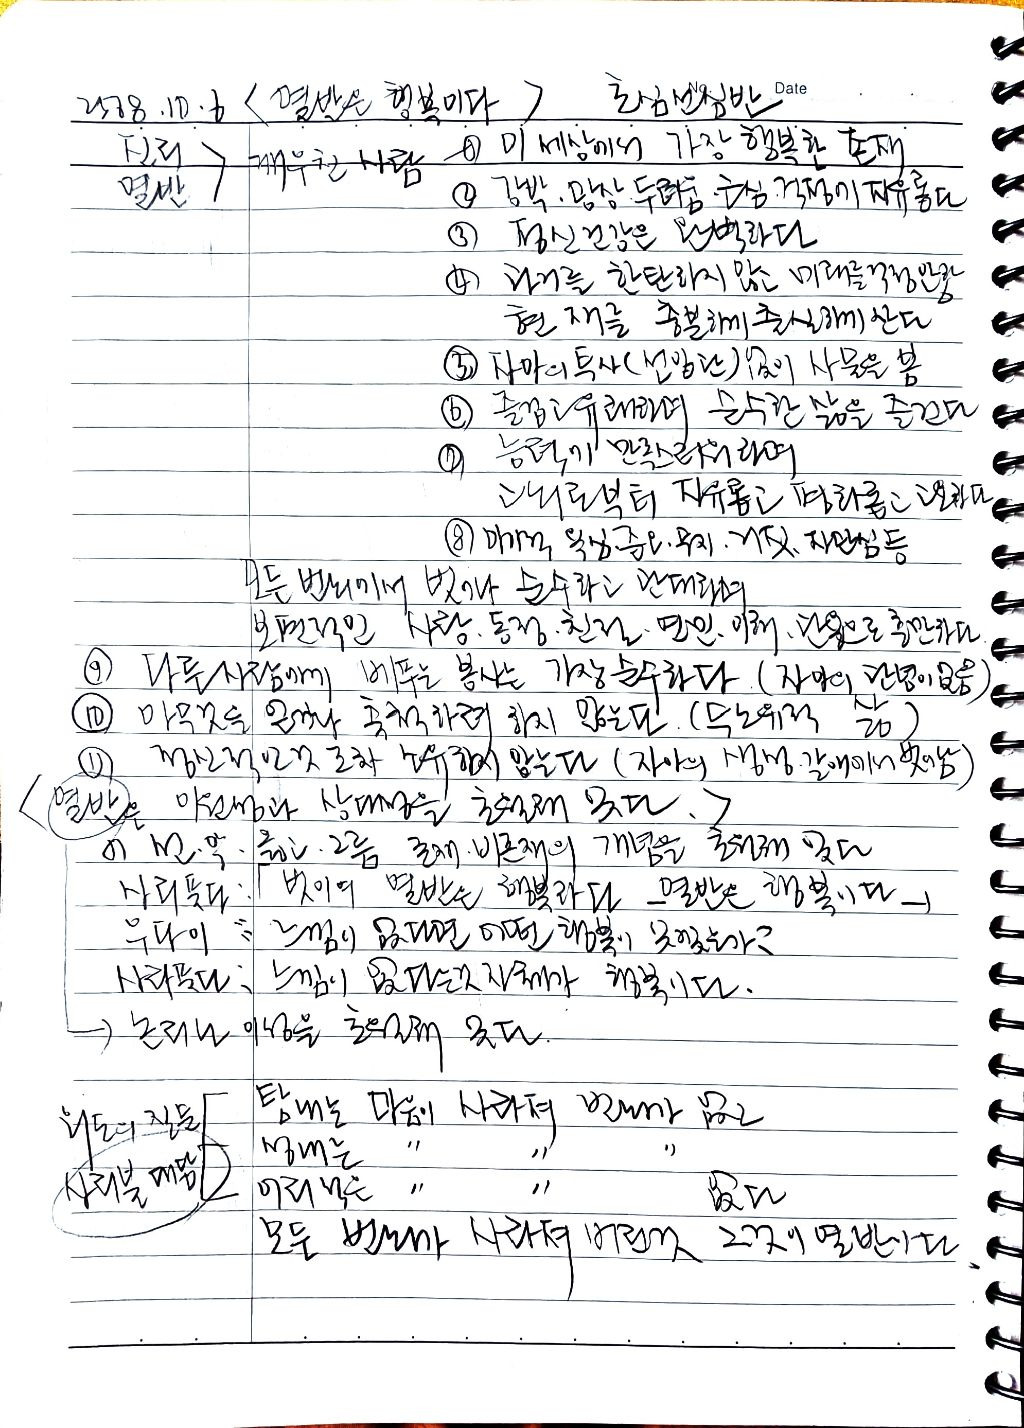 2538.10.6 < 열반은 행복이다 > 초심선심반 Date
진리 열반 > 깨우친 사람 ① 이 세상에서 가장 행복한 존재
② 강박.망상.두려움.근심.걱정이 자유롭다
③ 정신건강은 완벽하다
④ 과거를 한탄하지 않고 미래를 걱정안함
현재를 충분하게 충실하게 산다
⑤ 자아의 투사(선악판단)없이 사물을 봄
⑥ 즐겁고 유쾌하며 순수한 삶을 즐긴다
⑦ 능력이 만족스러워하며
으로부터 자유롭고 평화롭고
⑧ 이기적 욕심.증오.무지.거짓.자만심 등
모든 번뇌에서 벗어나 순수하고 관대하며
보편적인 사랑.동정.친절.연민.이해.관용으로 충만하다
⑨ 다른사람에게 베푸는 봉사는 가장순수하다 (자아의 관념이없음)
⑩ 아무것도 얻거나 축척하려 하지 않는다. (무소유적 삶)
⑪ 정신적인것 조차 소유하지 않는다 (자아의 생성 갈애에서 벗어남)
< 열반은 이원성과 상대성을 초월해 있다. >
이 선.악.옳고.그름 존재.비존재의 개념을 초월해 있다
사리풋다 : 「벗이여 열반은 행복하다 — 열반은 행복이다 →
우다이 : 느낌이 없다면 어떤 행복이 있겠는가?
사리풋다 : 느낌이 없다는것 자체가 행복이다.
→ 논리나 이성을 초월해 있다.
외도의 질문 탐내는 마음이 사라져 번뇌가 없고
성내는 〃 〃 〃
사리불 대답 어리석은 〃 〃 없다
모두 번뇌가 사라져 버린것 그것이 열반이다